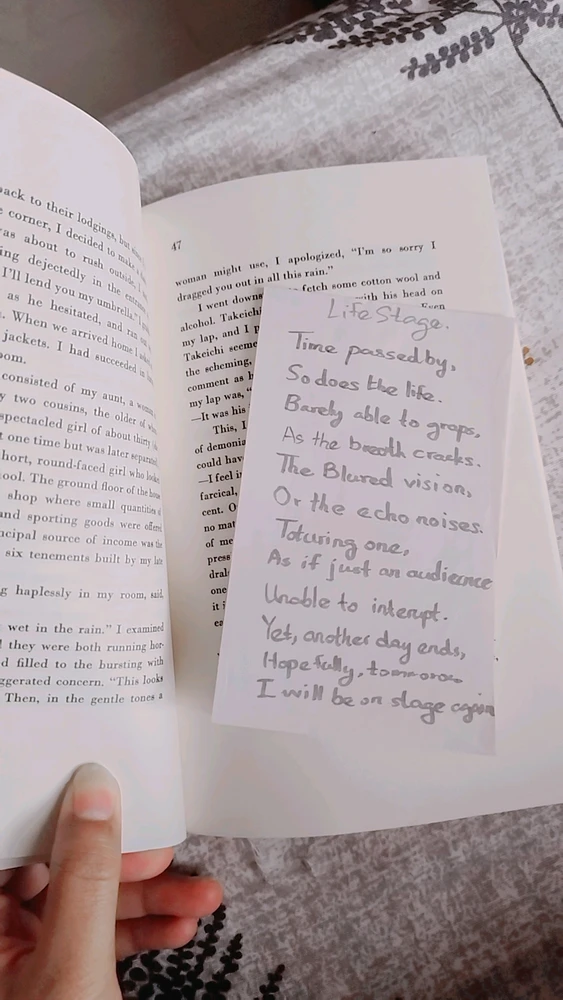 back to their lodgings, but
corner, I decided to make a
was about to rush outside,
ing dejectedly in the
I'll lend you my umbrella."
as he hesitated, and ran
. When we arrived home I
jackets. I had succeeded in
oom.
consisted of my aunt, a
y two cousins, the older of
spectacled girl of about thirty
t one time but was later separated
hort, round-faced girl who
ool. The ground floor of the house
shop where small quantities of
and sporting goods were offered
ncipal source of income was the
six tenements built by my late
g haplessly in my room, said,
wet in the rain." I examined
l they were both running hor-
d filled to the bursting with
ggerated concern. "This looks
Then, in the gentle tones a
47
woman might use, I apologized, "I'm so sorry I
dragged you out in all this rain."
I went downs fetch some cotton wool and
alcohol. Takeichi with his head on
my lap, and I p Even
Takeichi seeme
the scheming,
comment as h
my lap was, "
—It was his
This, I
of demonia
could have
—I feel i
farcical,
cent. O
no mat
of me
press
dral
one
it i
ea
Life Stage.
Time passed by,
So does the life.
Barely able to graps,
As the breath cracks.
The Blured vision,
Or the echo noises.
Toturing one,
As if just an audience
Unable to interupt.
Yet, another day ends,
Hopefully, tomorow
I will be on stage again